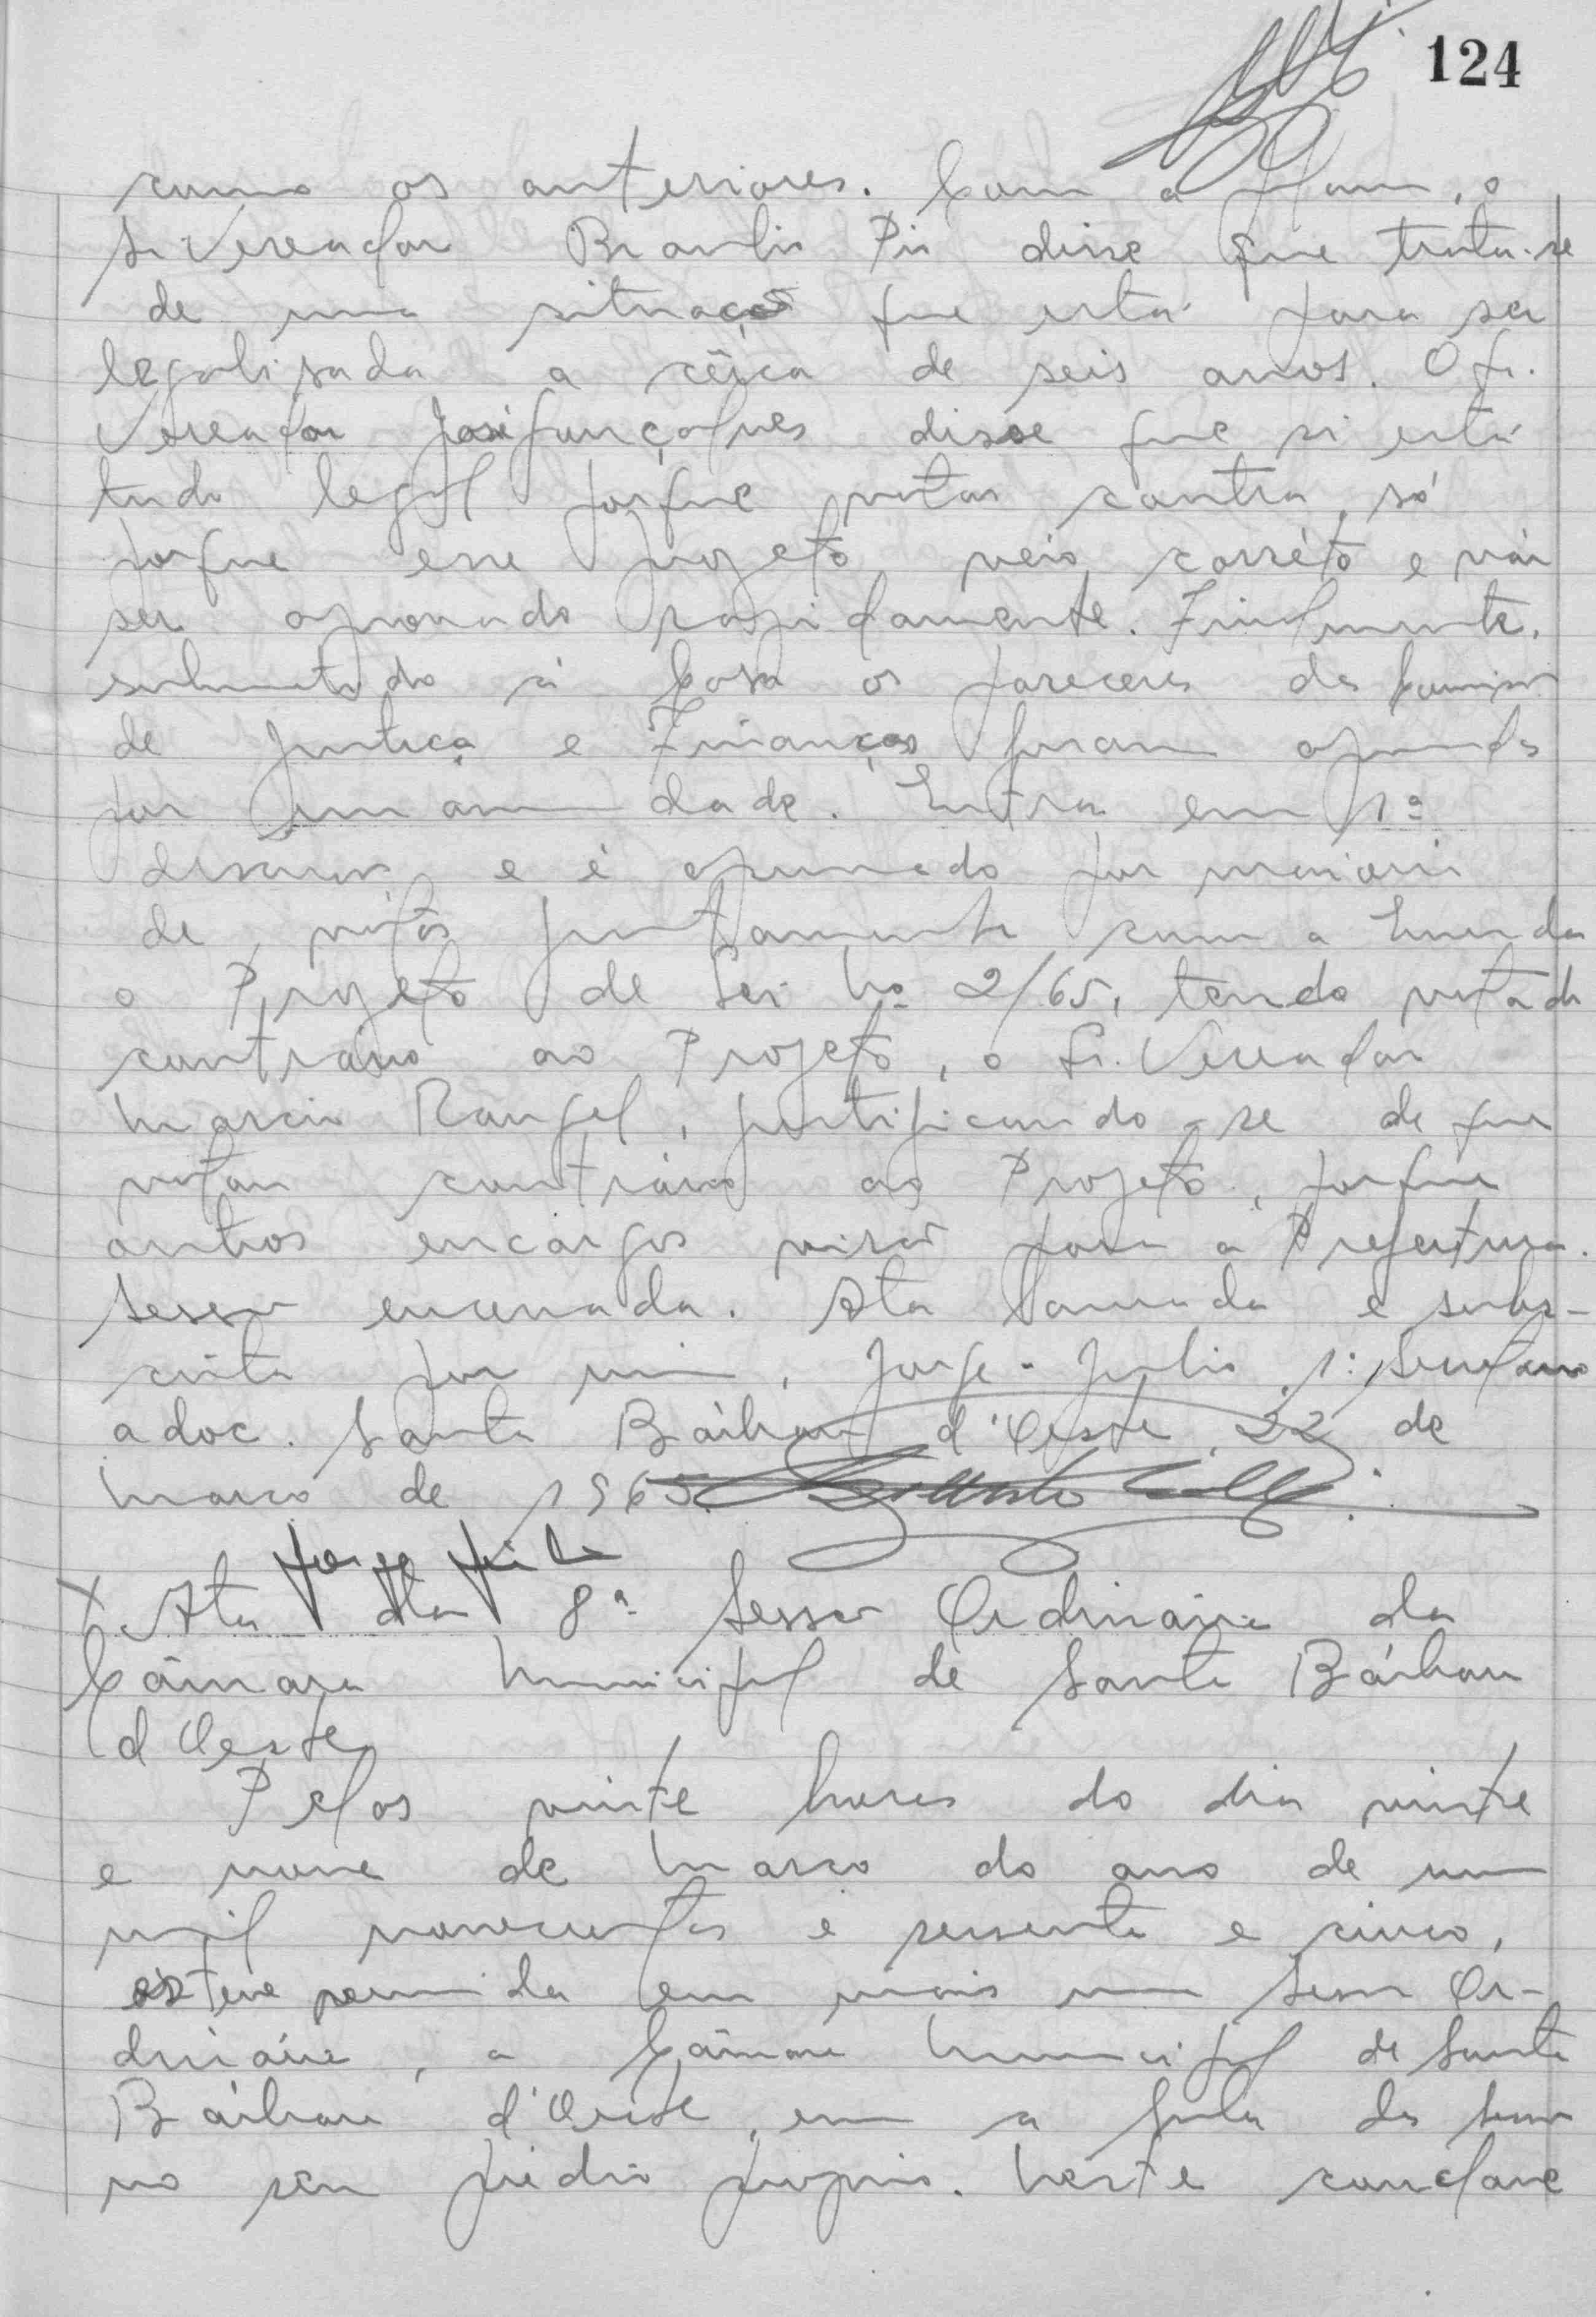 124
como os anteriores. Com a palavra, o
Sr Vereador Braulio Pio disse que trata-se
de uma situação que está para ser
legalisada a cêrca de seis anos. O Sr.
Vereador José Gonçalves disse que si está
tudo legal porque votar contra, só
porque esse projeto veio corréto e vai
ser aprovado rapidamente. Finalmente,
submetido à Casa os pareceres da Comissão
de Justiça e Finanças foram aprovados
por unanimidade. Entra em 1ª
discussão e é aprovado por maioria
de votos juntamente com a Emenda
o Projeto de Lei Nº 2/65, tendo votado
contrário ao Projeto, o Sr. Vereador
Marcio Rangel, justificando-se de que
votou contrário ao Projeto, porque
outros encargos virão para a Prefeitura.
Sessão encerrada. Ata lavrada e subs-
crita por mim, Jorge Julio, 1º Secretário
adoc. Santa Bárbara d'Oeste, 22 de
Março de 1965.
Jorge Julio
Ata da 8ª Sessão Ordinária da
Câmara Municipal de Santa Bárbara
d'Oeste
Pelas vinte horas do dia vinte
e nove de Março do ano de um
mil novecentos e sessenta e cinco,
esteve reunida em mais uma Sessão Or-
dinária, a Câmara Municipal de Santa
Bárbara d'Oeste, em a Sala das Sessões
no seu prédio proprio. Neste conclave